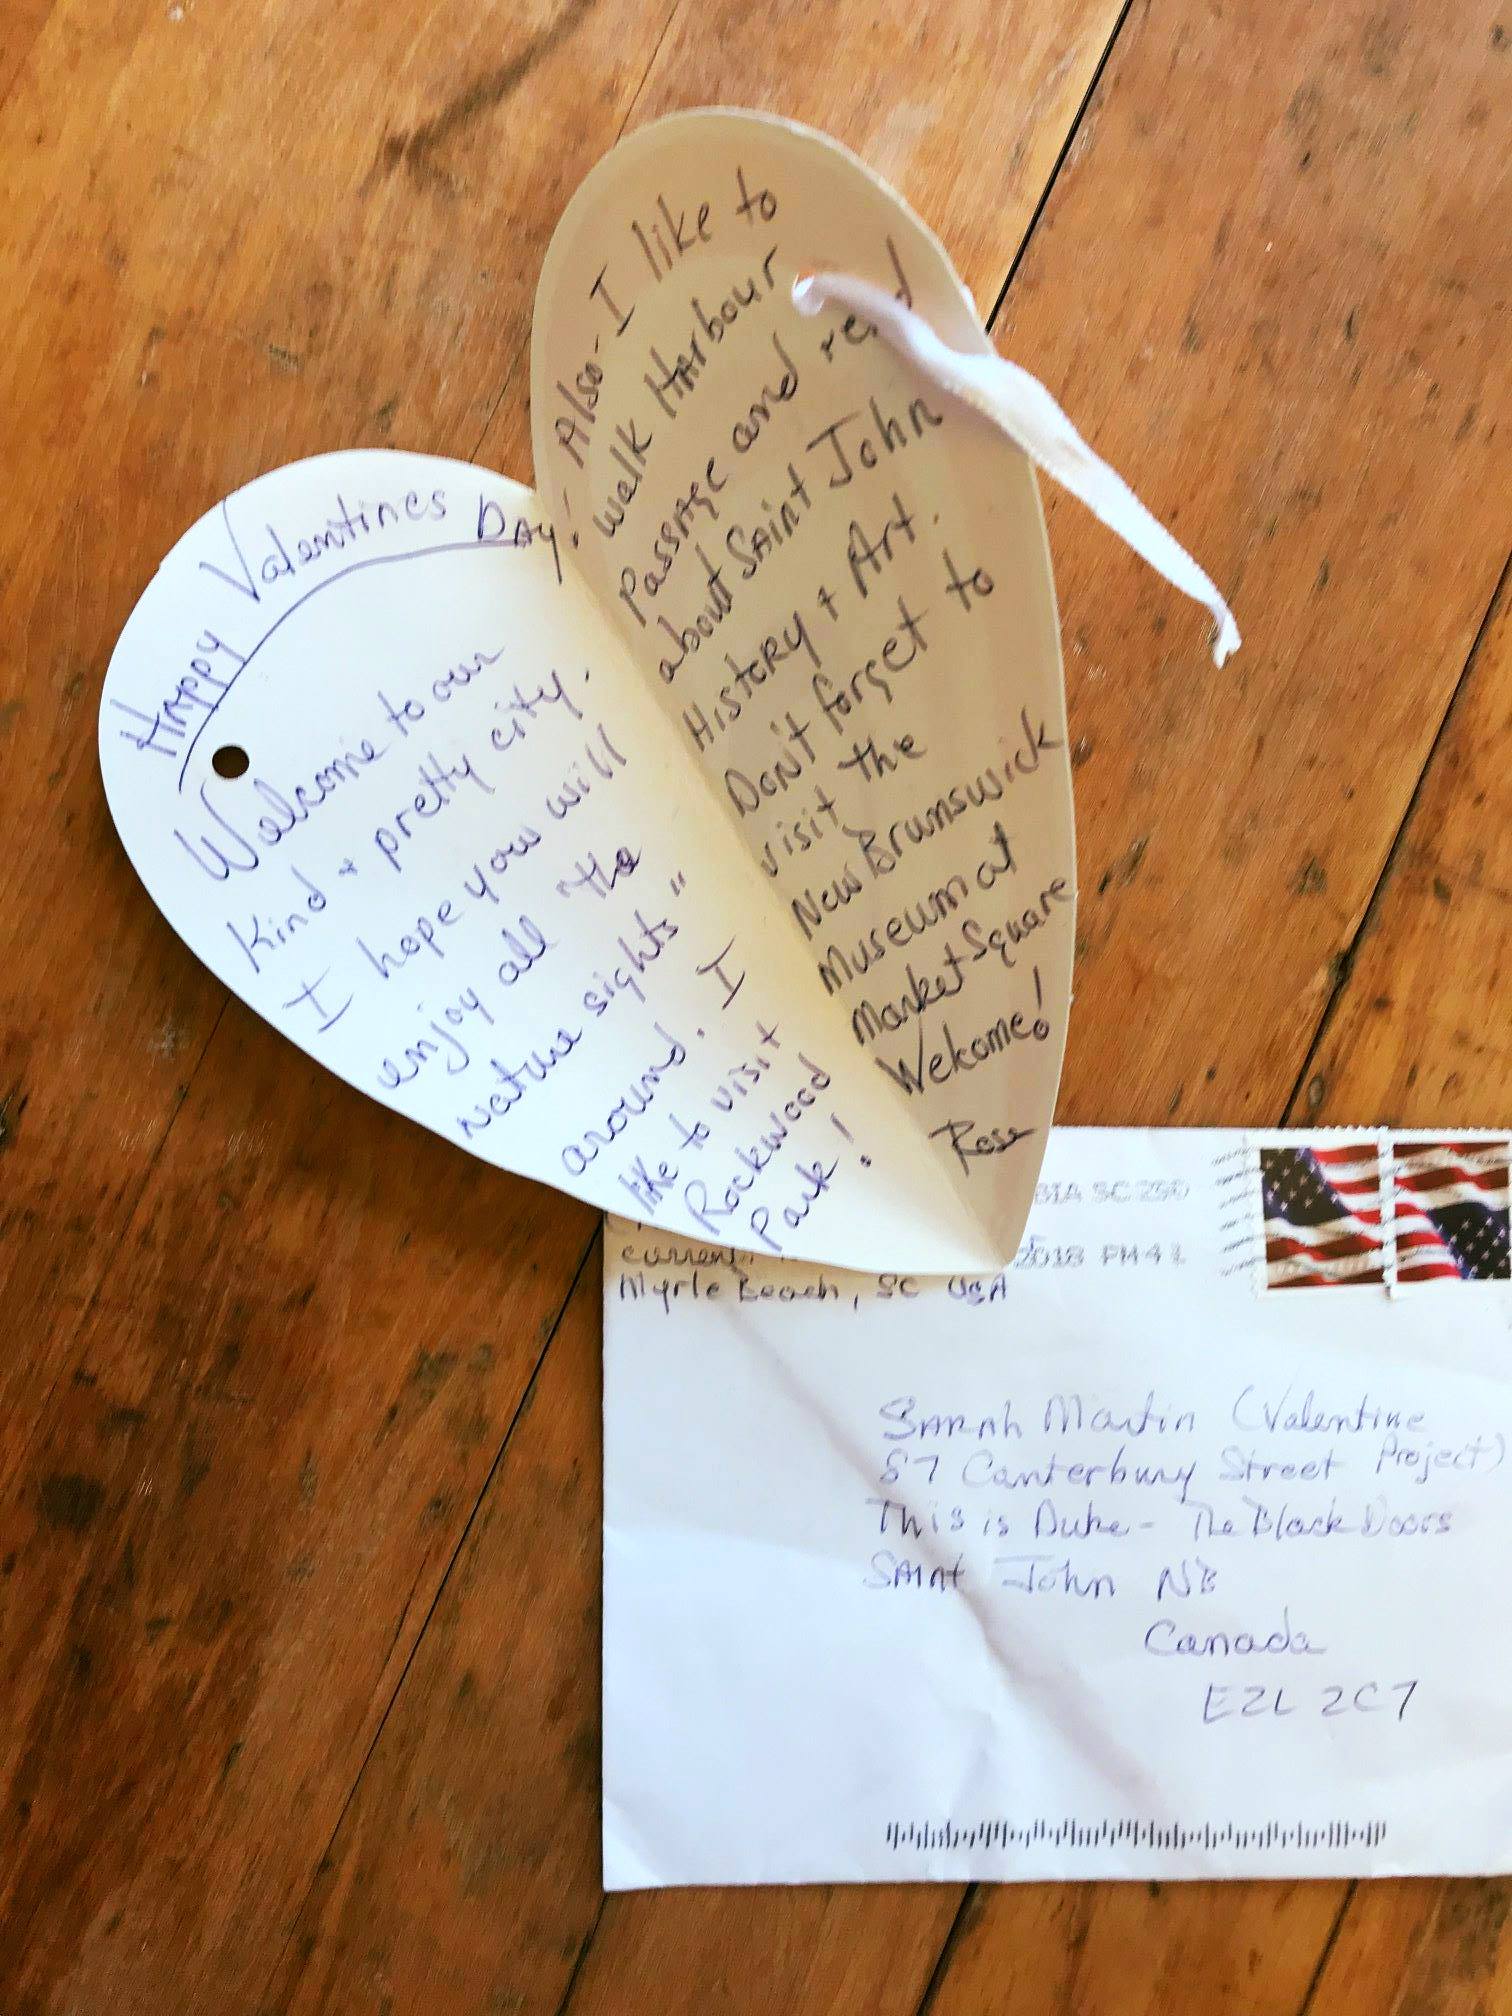 Happy Valentines Day!
Welcome to our
kind + pretty city.
I hope you will
enjoy all "the
nature sights"
around. I
like to visit
Rockwood
Park!
Also I like to
walk Harbour
Passage and read
about Saint John
History + Art.
Don't forget to
visit the
New Brunswick
Museum at
Market Square
Welcome!
Rose
BIA SC 290
2018 PM 4 L
Myrle Beach, SC USA
Sarah Martin (Valentine
Project)
87 Canterbury Street
This is Duke - The Black Doors
Saint John NB
Canada
E2L 2C7